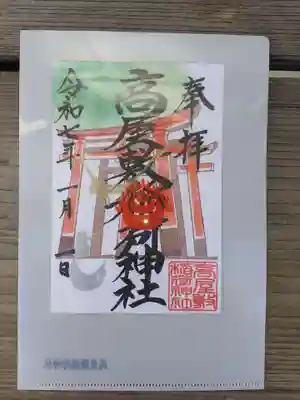 奉拝
高屋敷稲荷神社
令和七年一月一日
高屋敷
稲荷神社